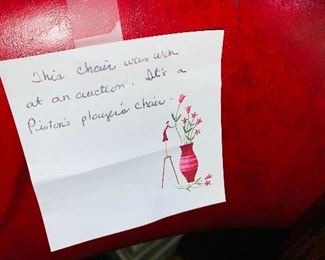 This chair was won
at an auction. It's a
Piston's player's chair.